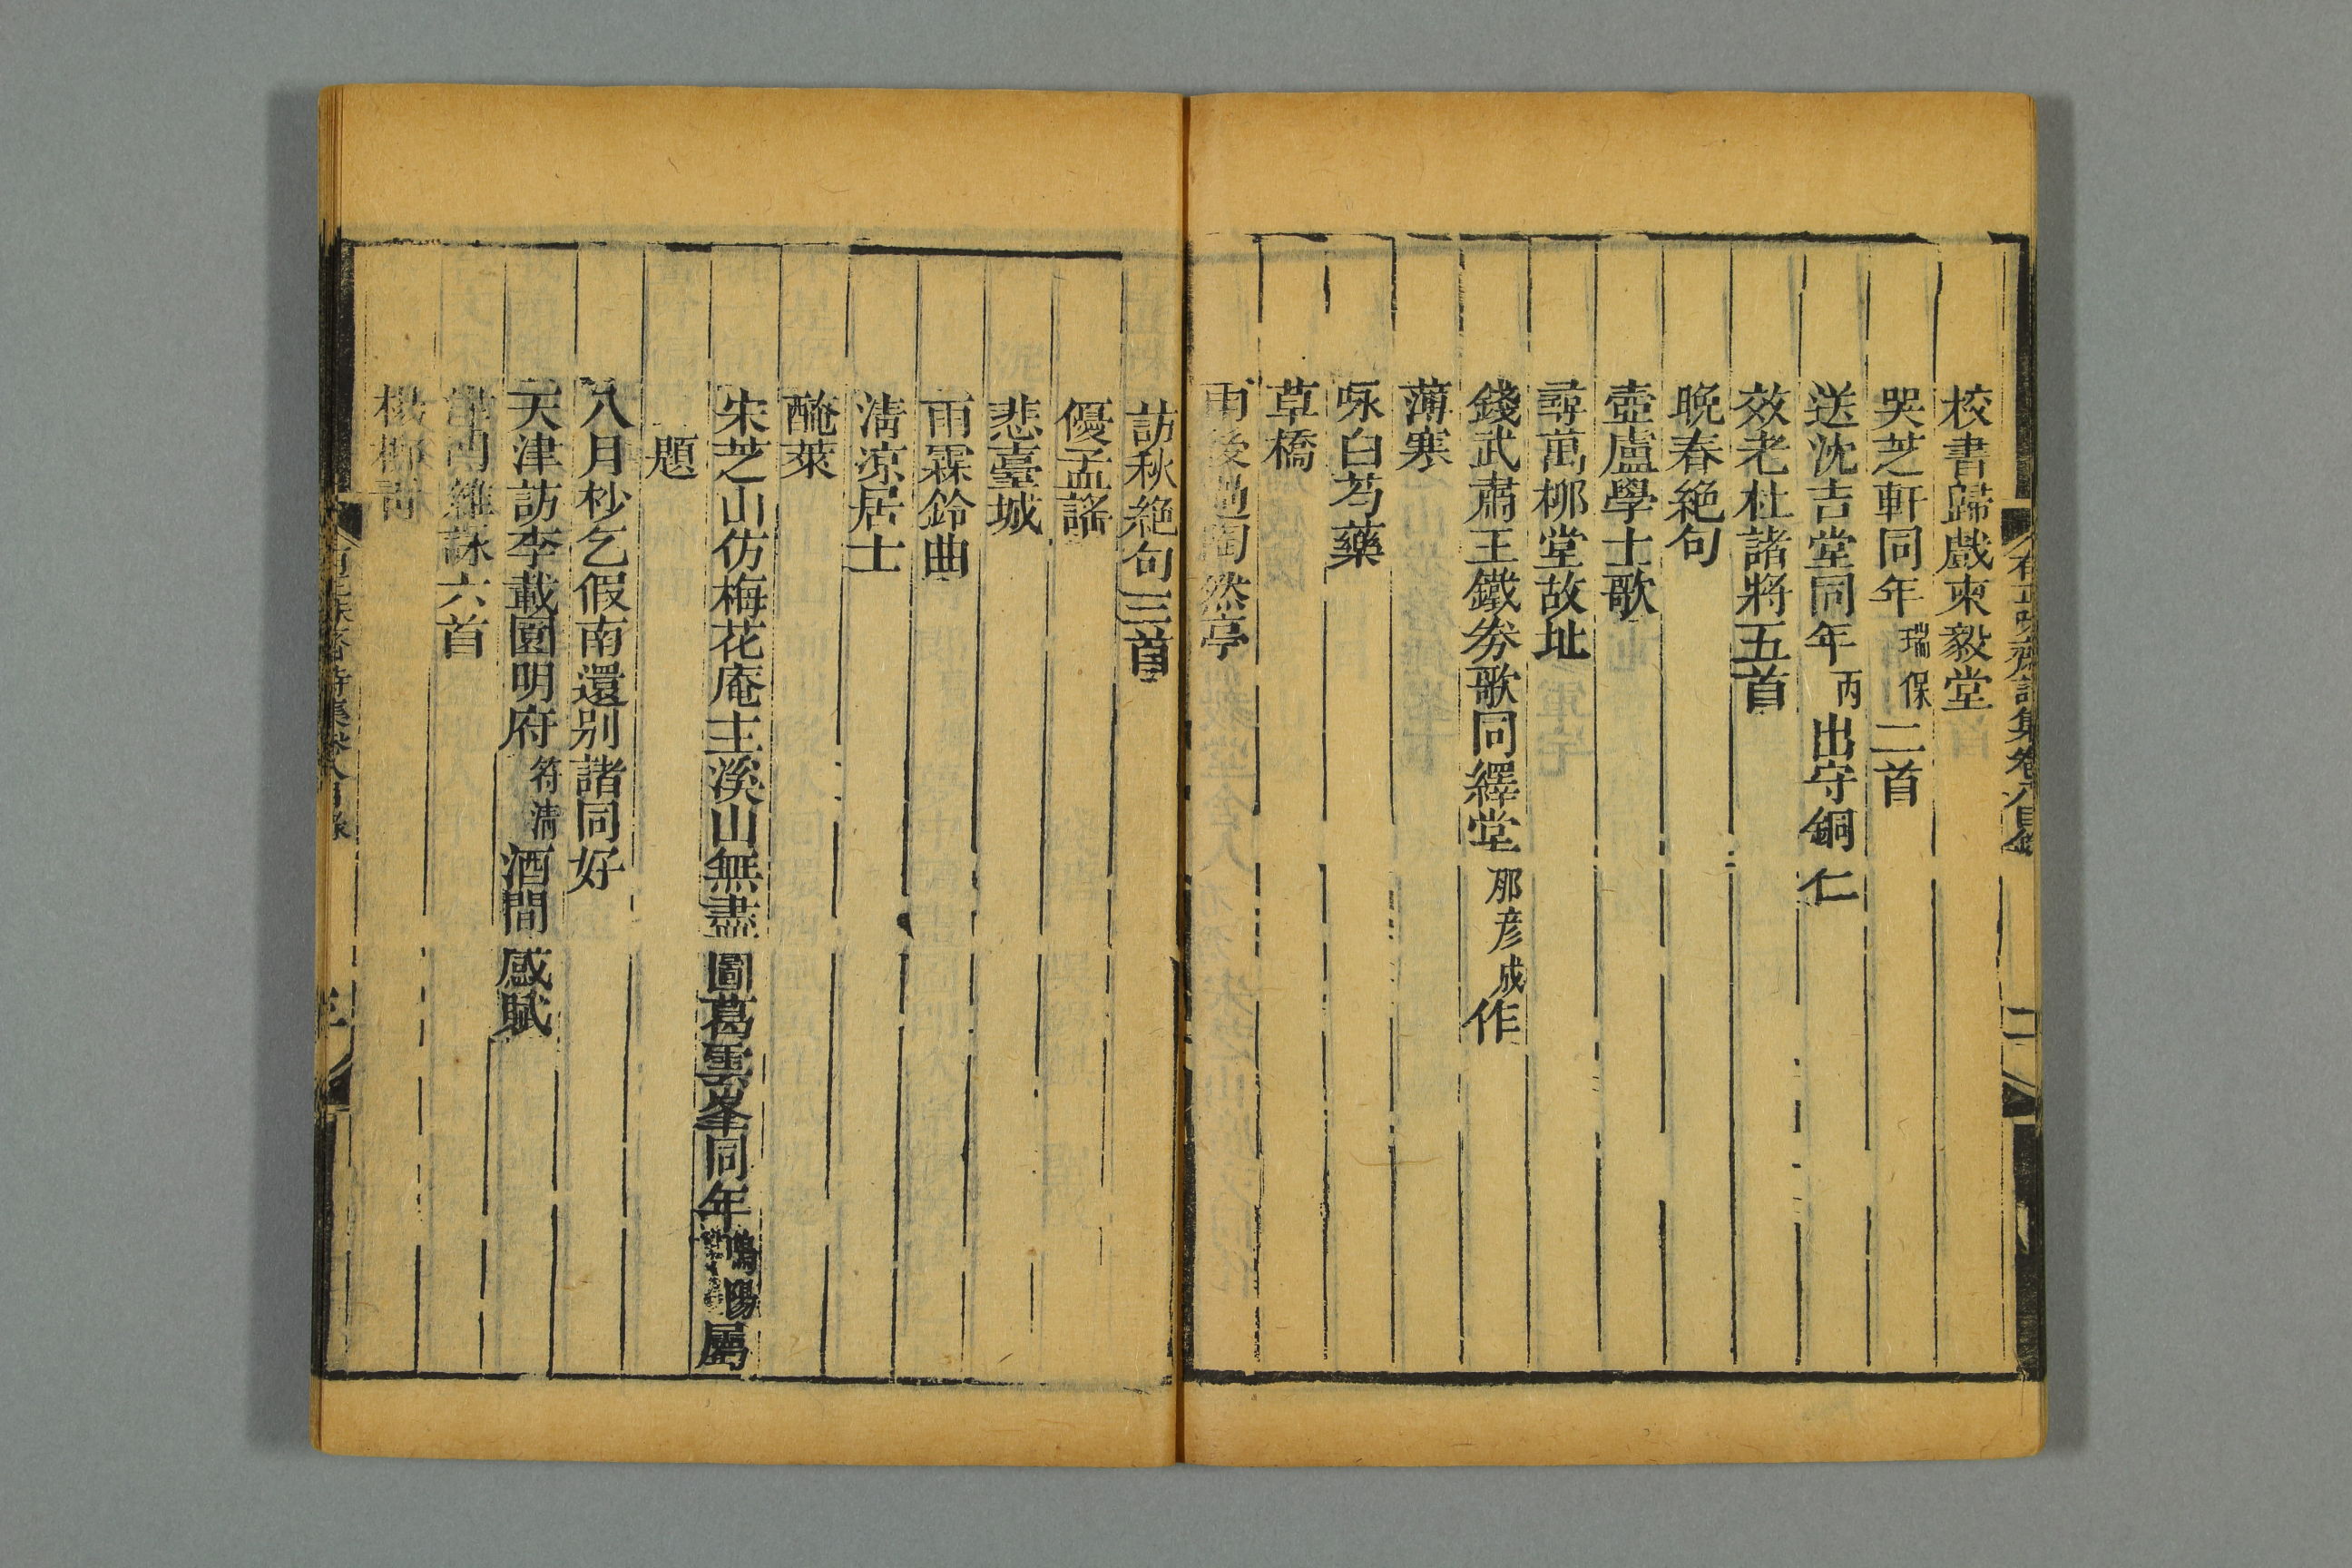 有正味齋詩集卷八目錄
二
校書歸戲柬毅堂
哭芝軒同年瑞保二首
送沈吉堂同年丙出守銅仁
效老杜諸將五首
晚春絶句
壺盧學士歌
尋萬柳堂故址
錢武肅王鐵劵歌同繹堂那彥成作
薄寒
咏白芍藥
草橋
雨後過陶然亭
訪秋絶句三首
優孟謠
悲臺城
雨霖鈴曲
淸凉居士
醃菜
宋芝山仿梅花庵主溪山無盡圖葛雲峯同年鳴陽屬
題
八月杪乞假南還別諸同好
天津訪李載園明府符淸酒間感賦
津門雜詠六首
有正味齋詩集卷八目錄
三